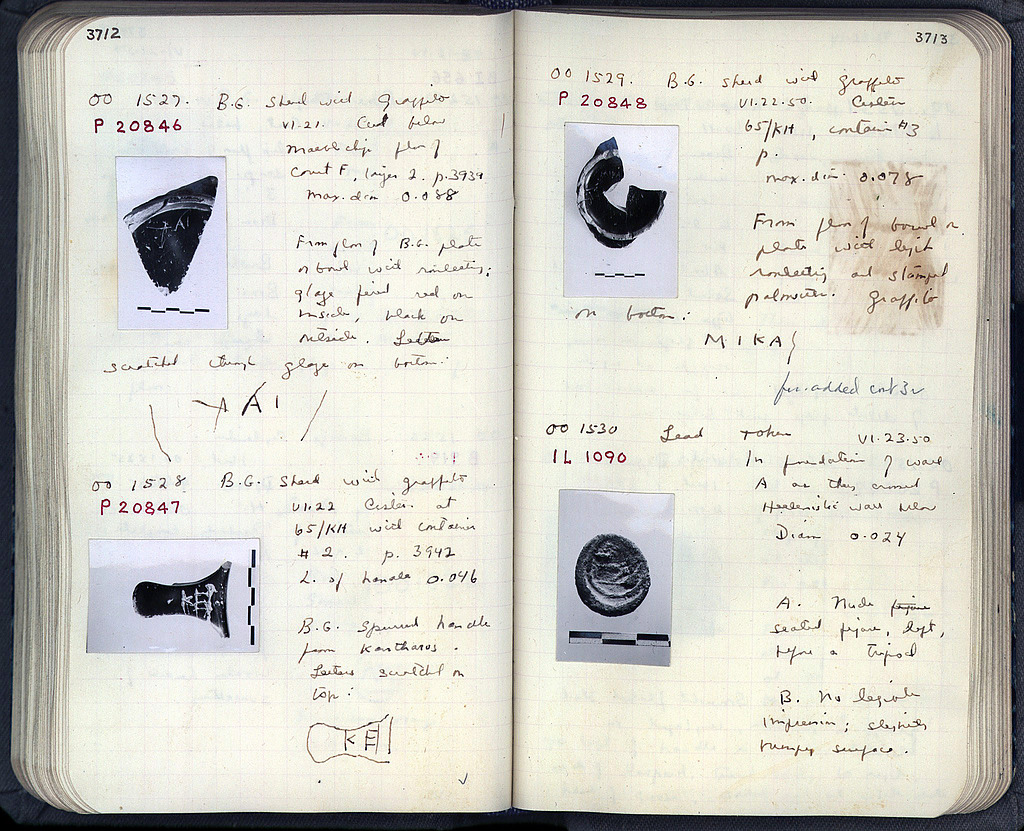 3712
OO 1527. B.G. sherd with graffito
P 20846
VI.21. Cut below
marble chip floor of
Court F, layer 2. p.3939
Max. dim 0.088
From floor of B.G. plate
or bowl with rouletting;
glaze fired red on
inside, black on
outside. Letters
scratched through glaze on bottom:
AI
OO 1528. B.G. sherd with graffito
P 20847
VI.22 Cistern at
65/KH with container
# 2. p. 3942
L. of handle 0.046
B.G. spurred handle
from kantharos.
Letters scratched on
top.
KE
3713
OO 1529. B.G. sherd with graffito
P 20848
VI.22.50. Cistern
65/KH, container #3
p.
max. dim. 0.078
From floor of bowl or
plate with light
rouletting and stamped
palmettes. Graffito
on bottom:
MIKA
fr. added
OO 1530 Lead token VI.23.50
IL 1090
In foundation of wall
A as they crossed
Hellenistic wall below
Diam 0.024
A. Nude figure
seated figure, left,
before a tripod
B. No legible
impression; slightly
bumpy surface.